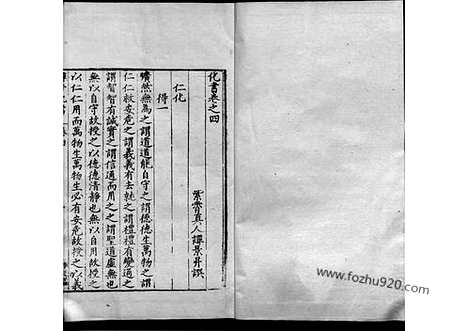 化書卷之四
紫霄真人譚景升譔
仁化
得一
曠然無為之謂道道能自守之謂德德生萬物之謂
仁仁救安危之謂義義有去就之謂禮禮有變通之
謂智智有誠實之謂信通而用之之謂聖道虛無也
無以自守故授之以德德清靜也無以自用故授之
以仁仁用而萬物生萬物生必有安危故授之以義
www.fozhu920.com